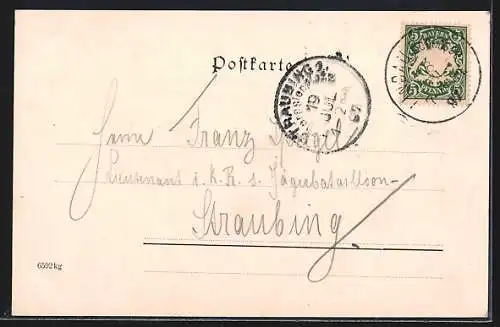 Postkarte
BAYERN
5 5
PFENNIG
STRAUBING 2.
19
JUL
Herrn Franz
Lieutenant i. K. R. s. Jägerbataillon-
Straubing.
6592kg